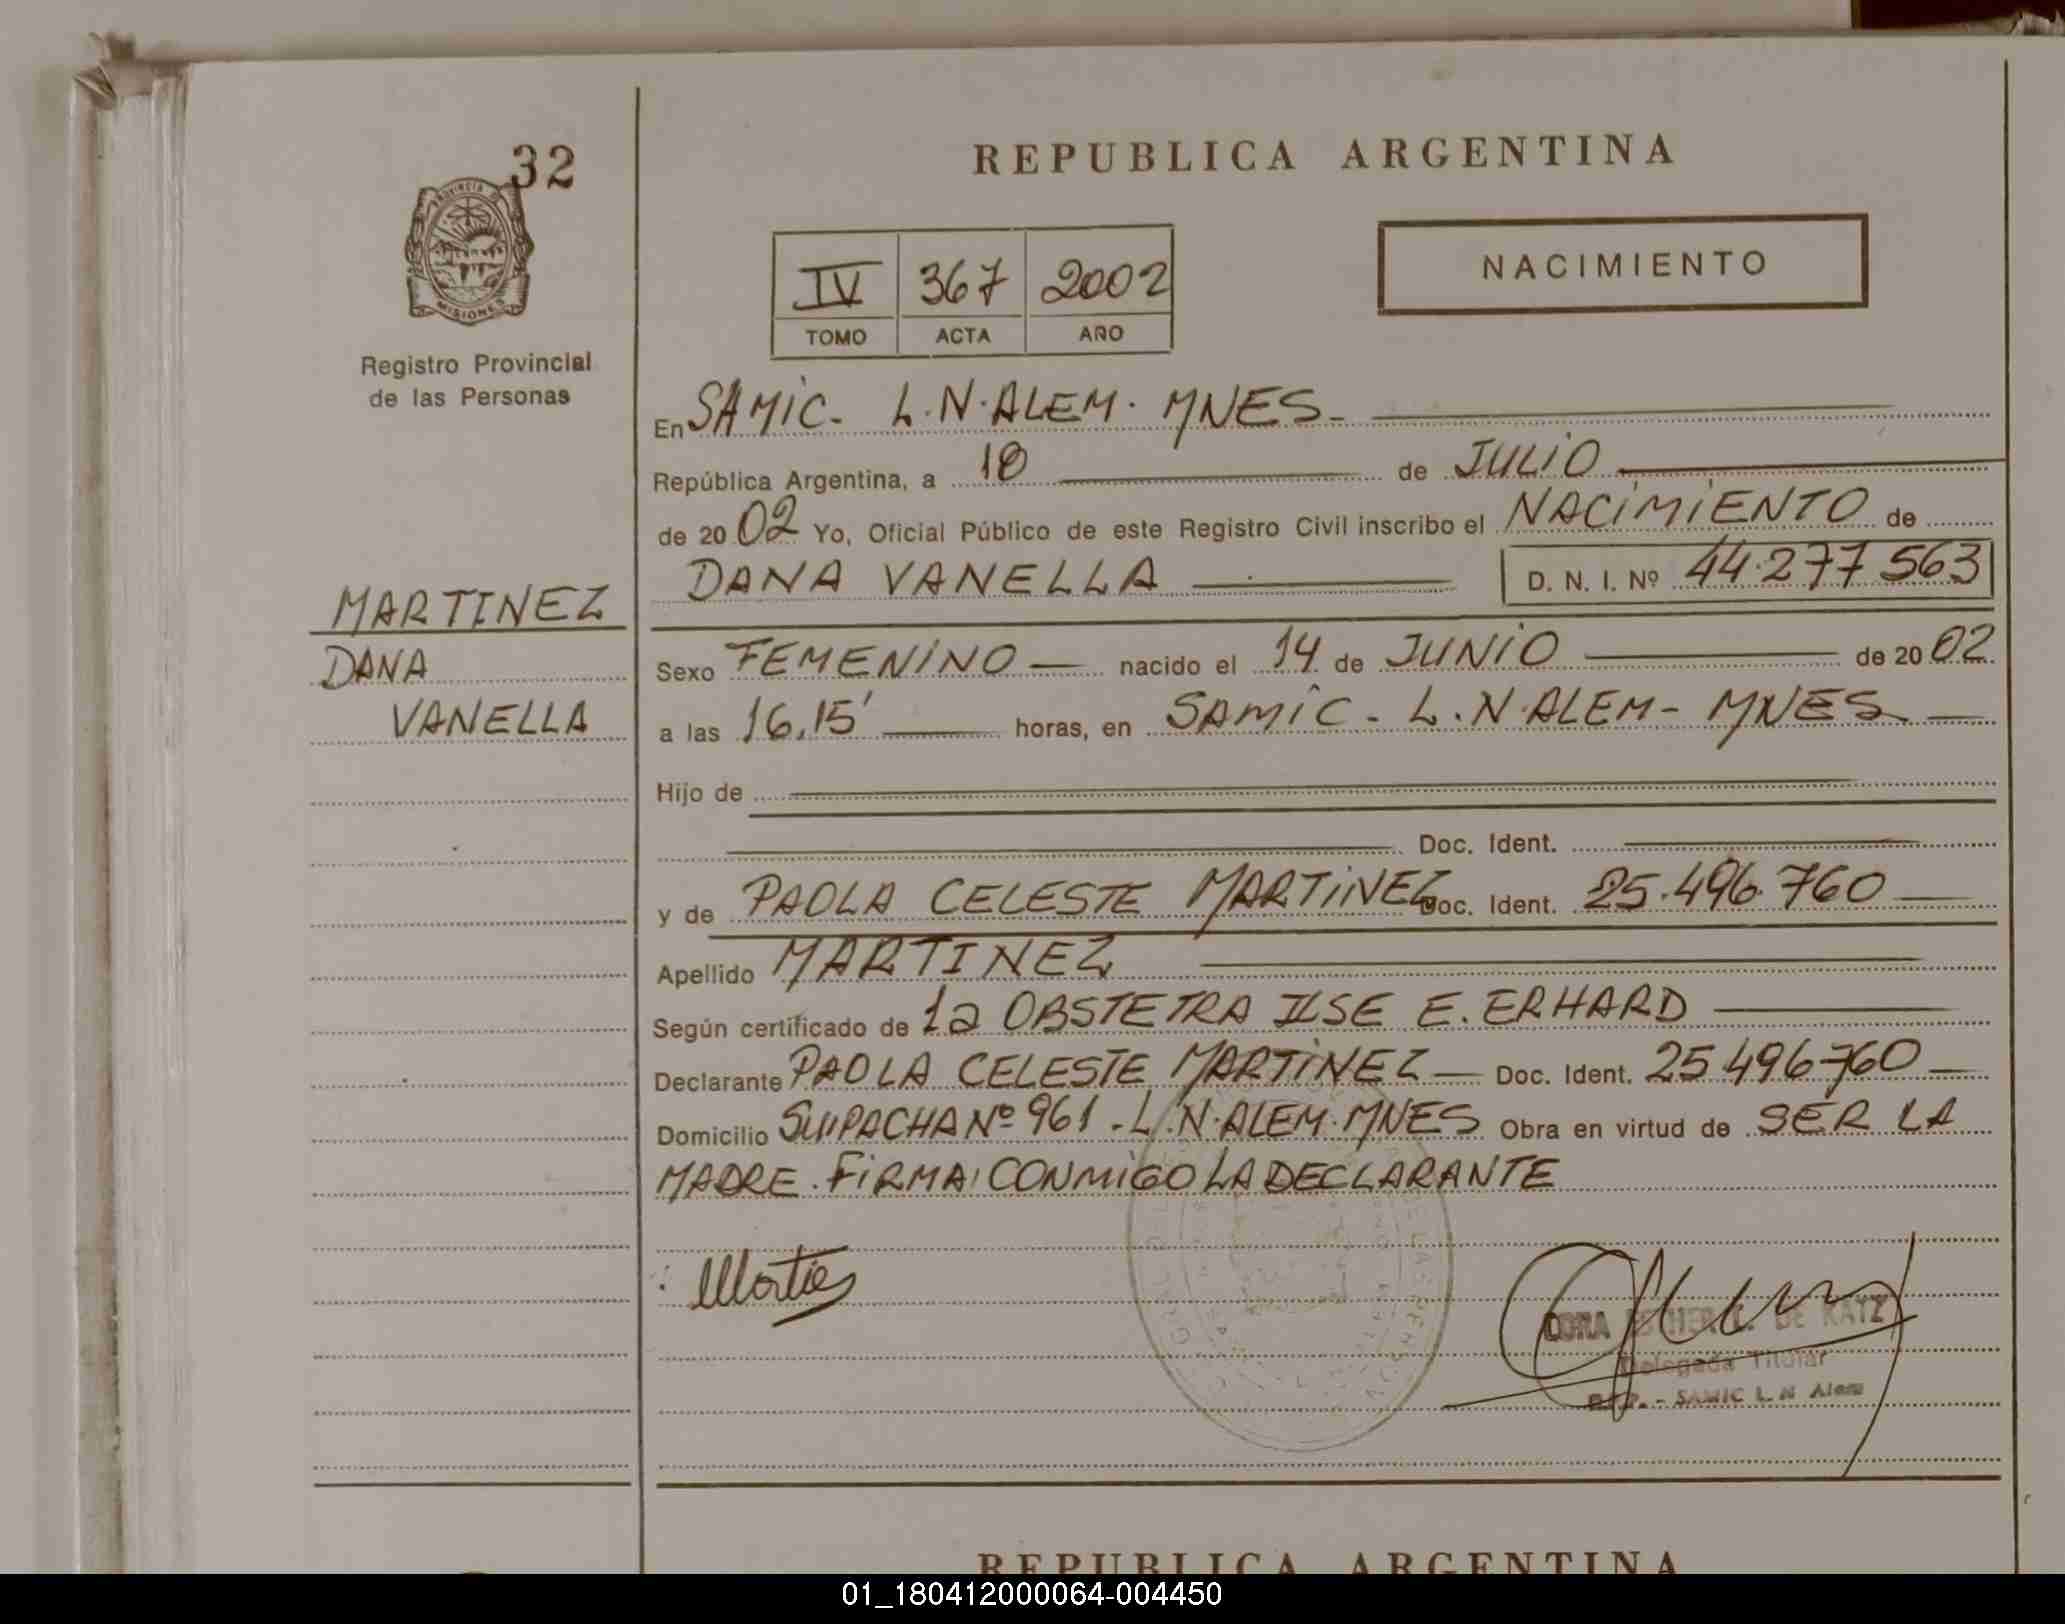 32
PROVINCIA DE
MISIONES
Registro Provincial
de las Personas
MARTINEZ
DANA
VANELLA
REPUBLICA ARGENTINA
IV 367 2002
TOMO ACTA AÑO
NACIMIENTO
En SAMIC- L.N.ALEM. MNES-
República Argentina, a 18 de JULIO
de 2002 Yo, Oficial Público de este Registro Civil inscribo el NACIMIENTO de
DANA VANELLA D. N. I. Nº 44.277 563
Sexo FEMENINO nacido el 14 de JUNIO de 2002
a las 16,15' horas, en SAMIC- L.N.ALEM- MNES
Hijo de
Doc. Ident.
y de PAOLA CELESTE MARTINEZ Doc. Ident. 25.496.760
Apellido MARTINEZ
Según certificado de la OBSTETRA ILSE E. ERHARD
Declarante PAOLA CELESTE MARTINEZ Doc. Ident. 25.496760
Domicilio SUIPACHA Nº 961-L.N.ALEM.MNES Obra en virtud de SER LA
MADRE. FIRMA CONMIGO LA DECLARANTE
CORA ESTHER L. DE KATZ
Delegada Titular
R.P.P. - SAMIC L. N Alem
REPUBLICA ARGENTINA
01_180412000064-004450